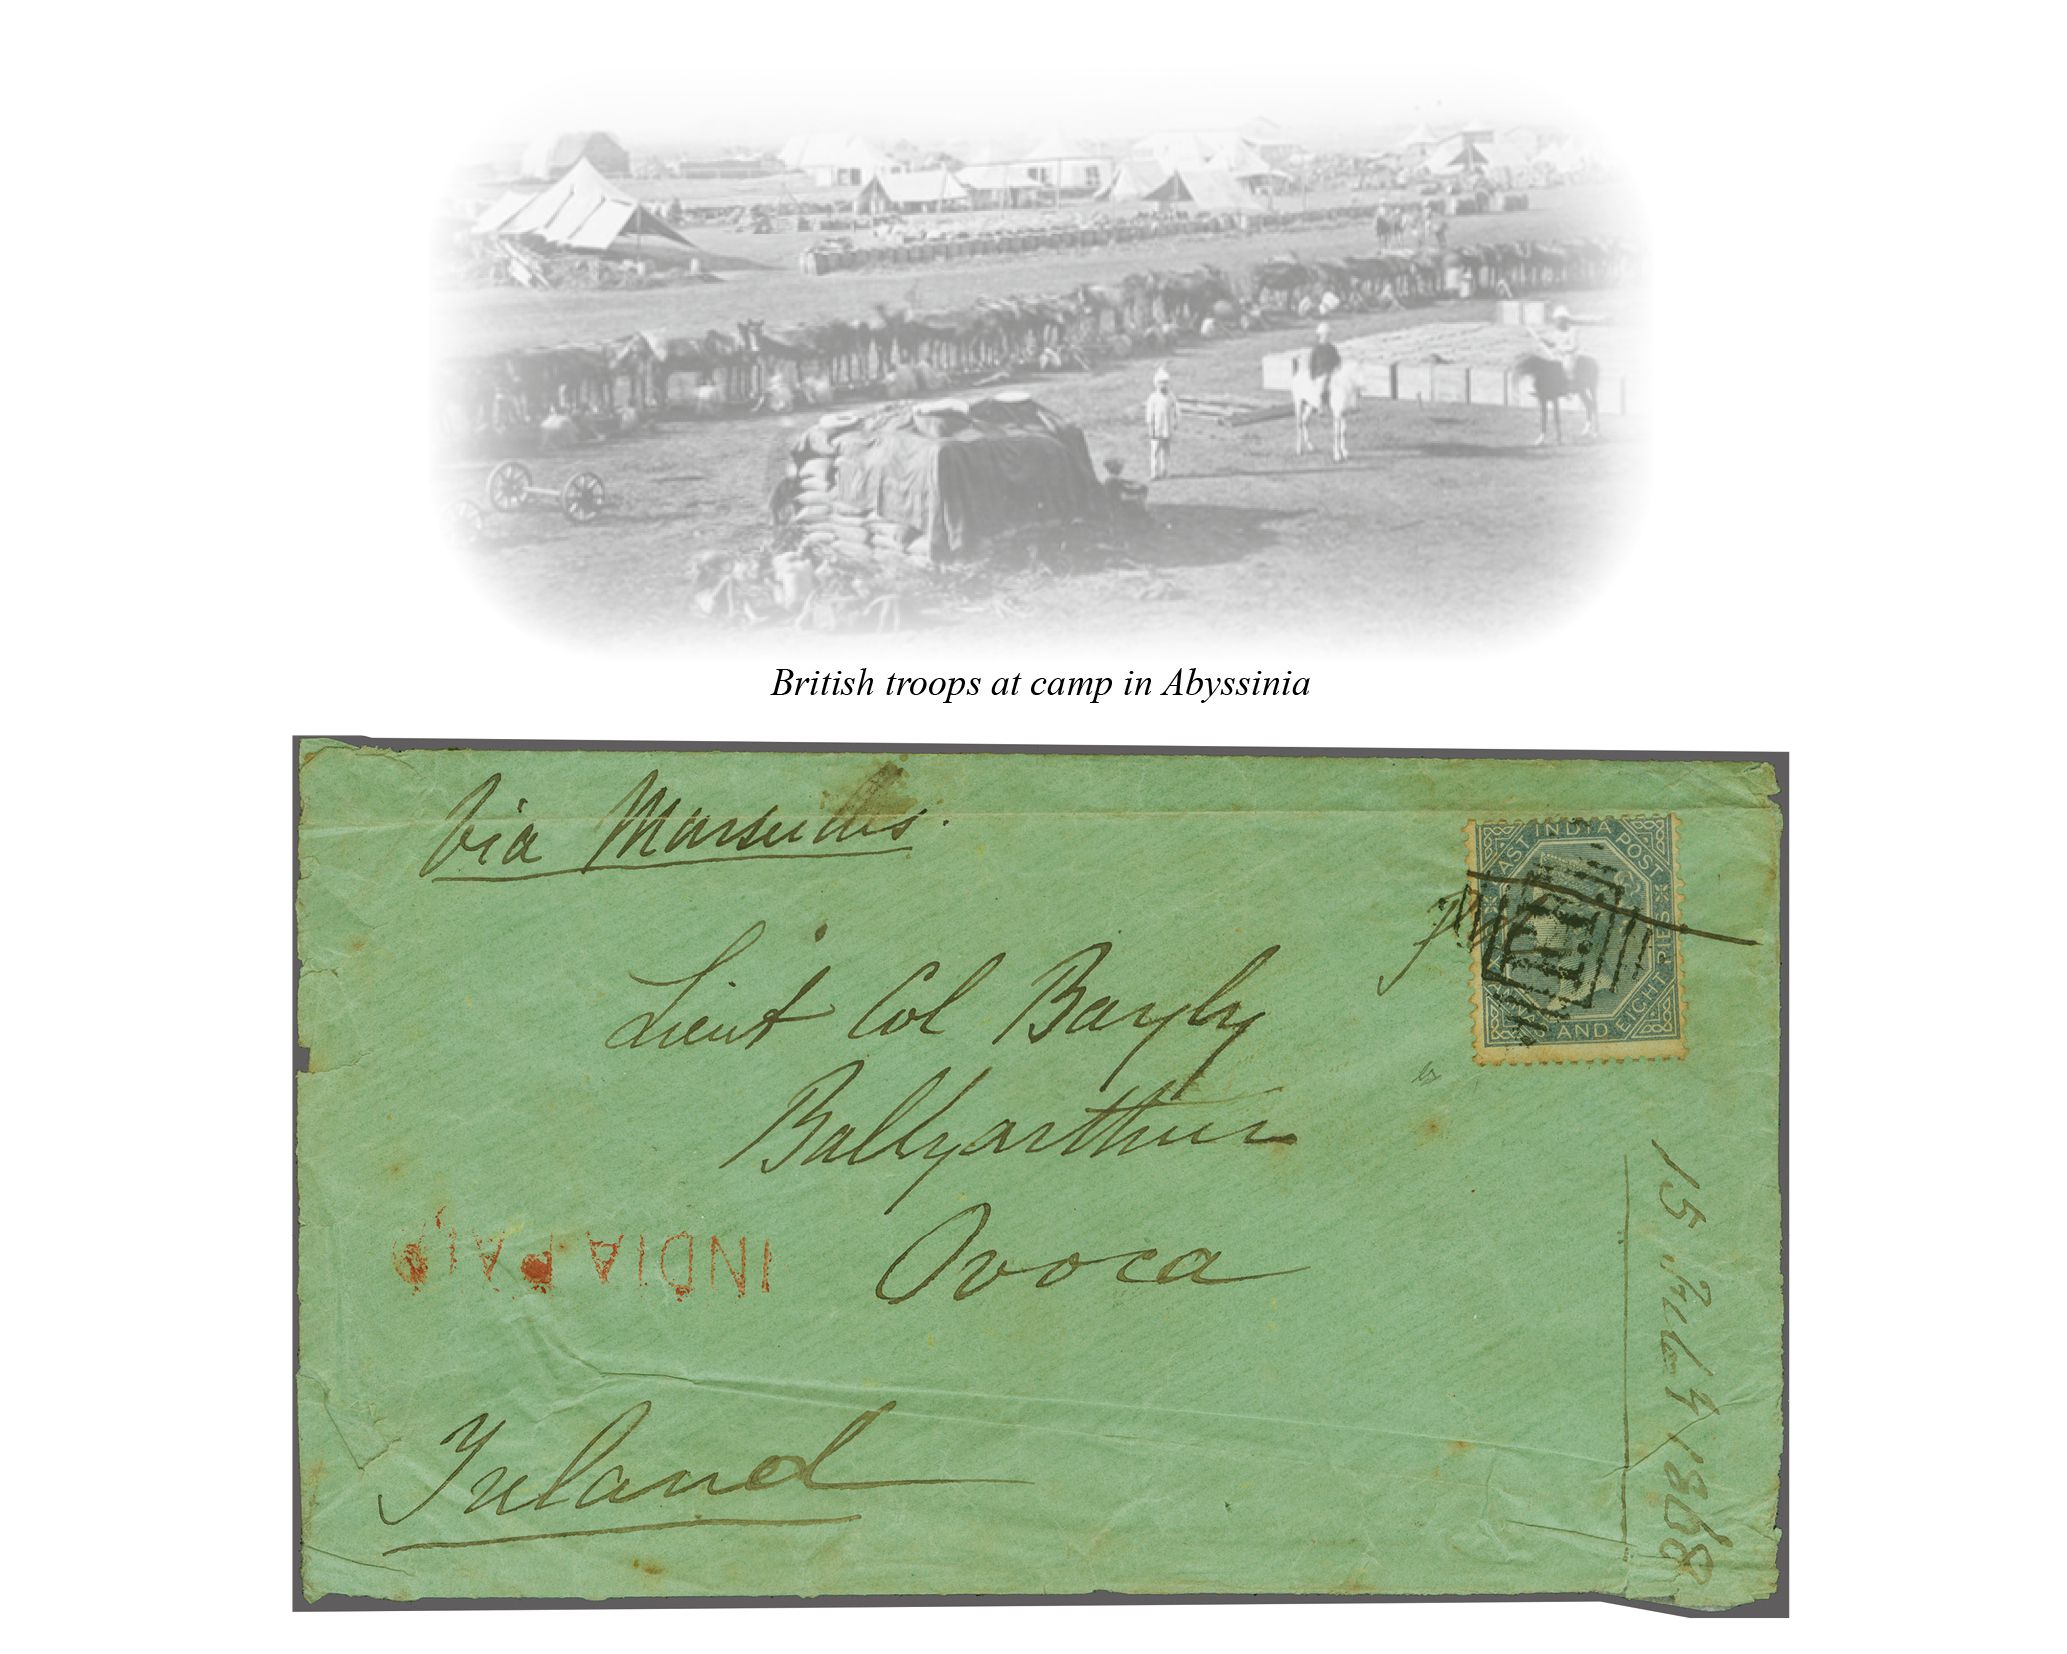 British troops at camp in Abyssinia
Via Marseilles.
EAST INDIA POSTAGE
SIX ANNAS AND EIGHT PIES
Lieut Col Bayly
Ballyarthur
Ovoca
INDIA PAID
Ireland
15 July 1868